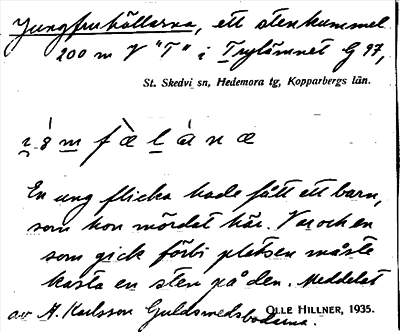 Jungfruhällarna, ett stenkummel
200 m V "T" i Trytämnet G 97,
St. Skedvi sn, Hedemora tg, Kopparbergs län.
En ung flicka hade fått ett barn,
som hon mördat här. Var och en
som gick förbi platsen måste
kasta en sten på den. Meddelat
av A. Karlsson
OLLE HILLNER, 1935.